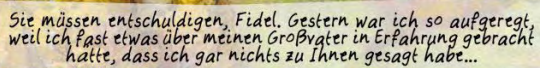 Sie müssen entschuldigen, Fidel. Gestern war ich so aufgeregt,
weil ich fast etwas über meinen Großvater in Erfahrung gebracht
hatte, dass ich gar nichts zu Ihnen gesagt habe...